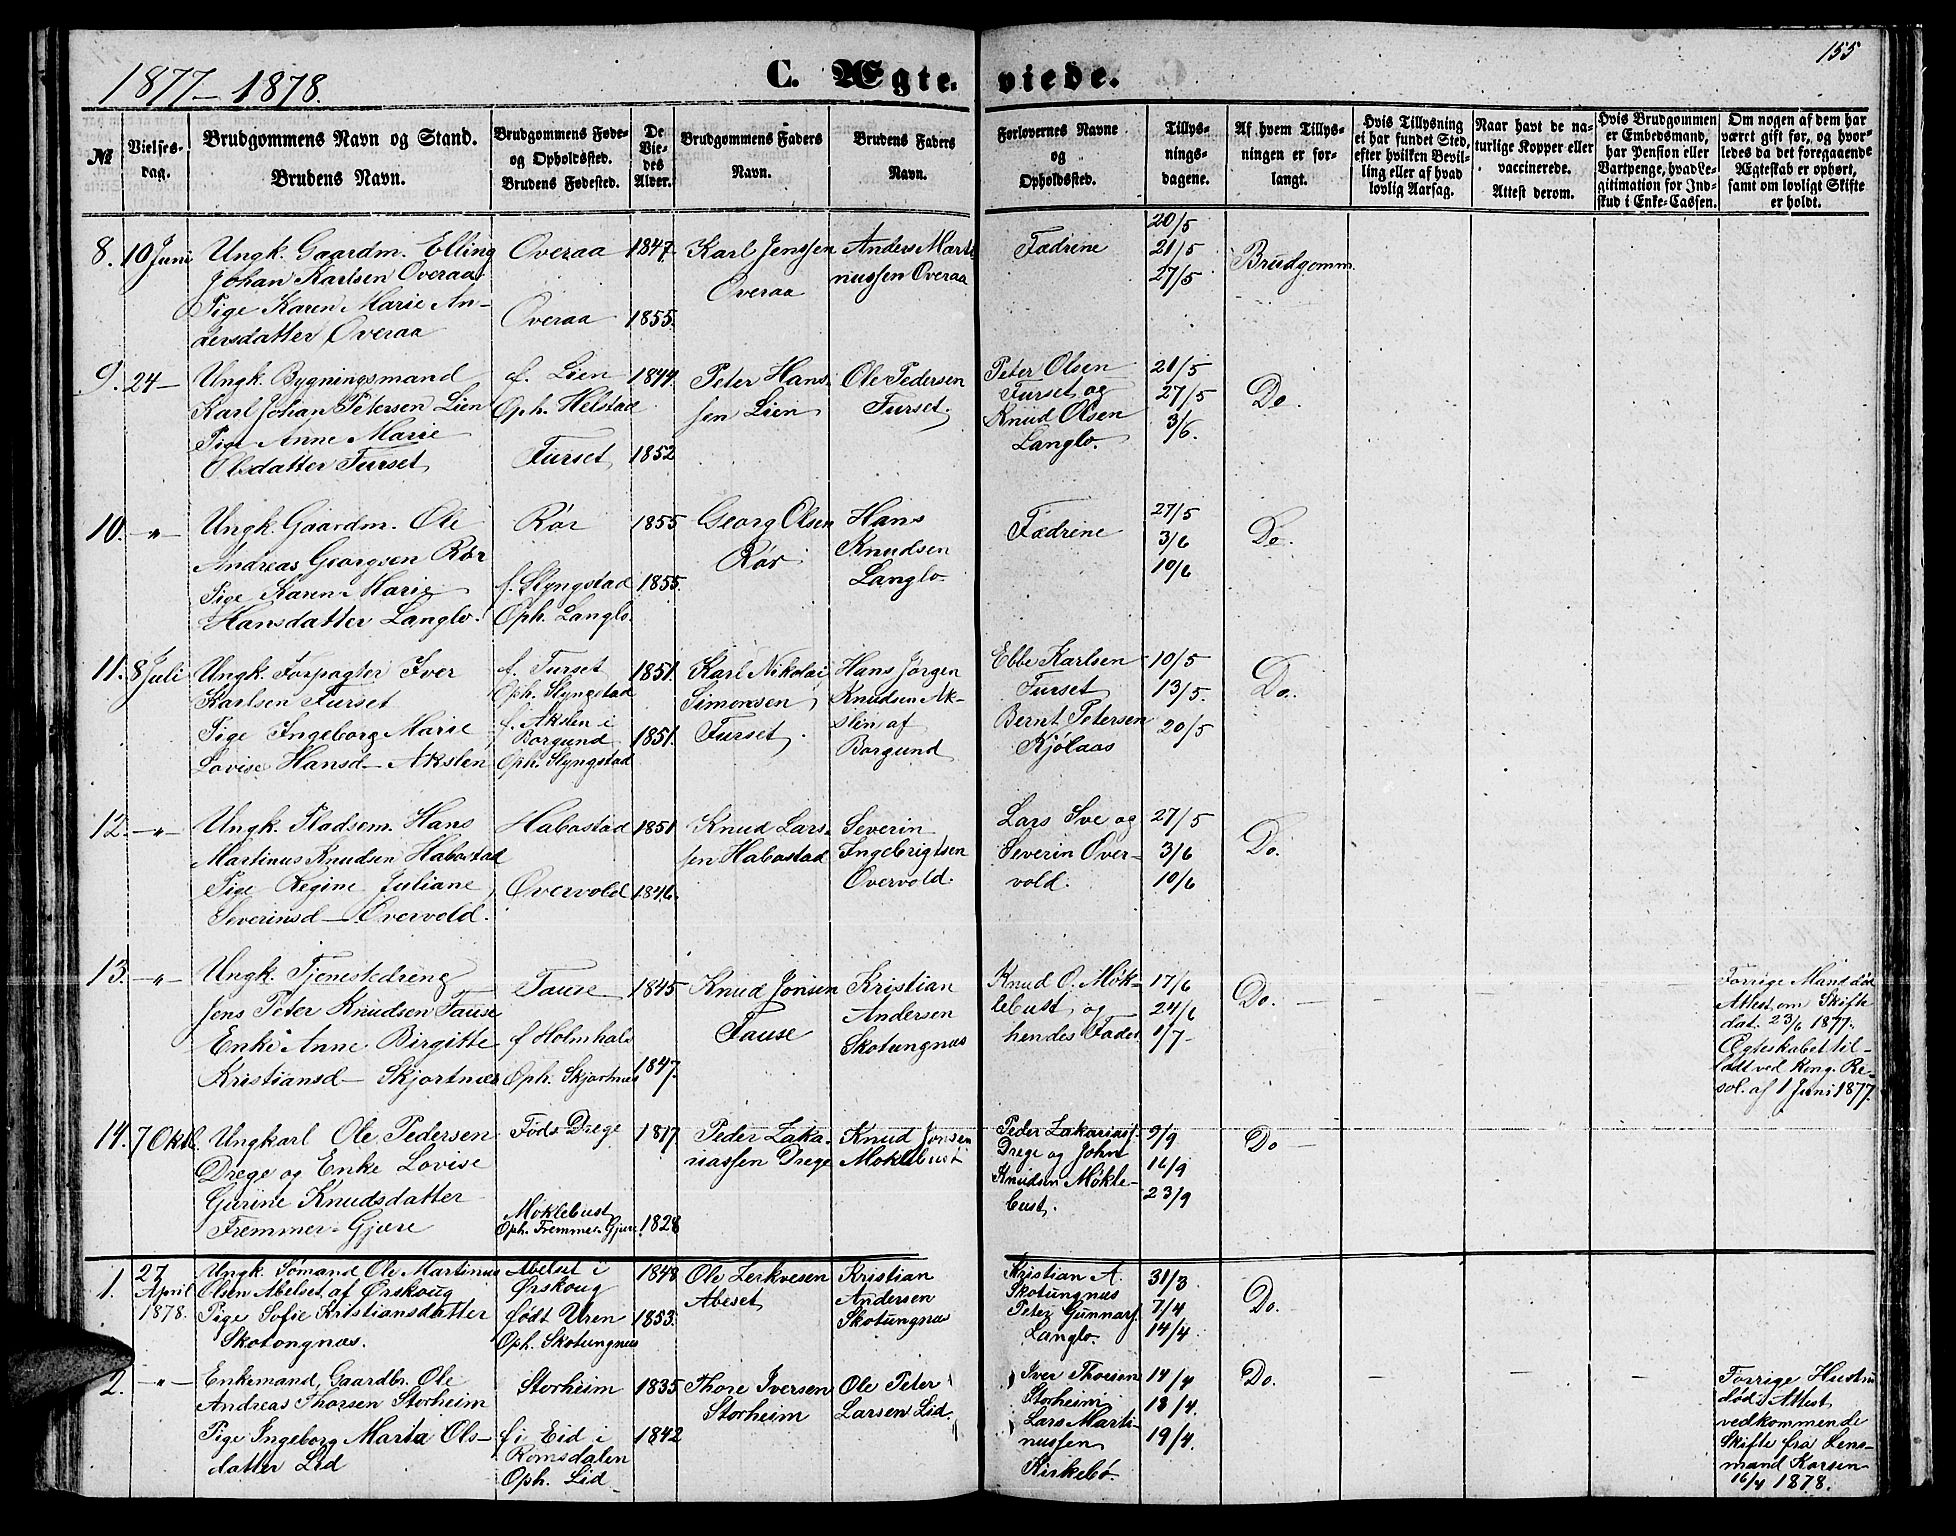 155
1877-1878.
C. Ægte-viede.
№
Vielses-
dag.
Brudgommens Navn og Stand.
Brudens Navn.
Brudgommens Føde-
og Opholdssted.
Brudens Fødested.
De
Vie-
des
Alder.
Brudgommens Faders
Navn.
Brudens Faders
Navn.
Forlovernes Navne
og
Opholdssted.
Tillys-
nings-
dagene.
Af hvem Tillys-
ningen er for-
langt.
Hvis Tillysning
ei har fundet Sted,
efter hvilken Bevil-
ling eller af hvad
lovlig Aarsag.
Naar havt de na-
turlige Kopper eller
vaccinerede.
Attest derom.
Hvis Brudgommen
er Embedsmand,
har Pension eller
Vartpenge, hvad Le-
gitimation for Ind-
skud i Enke-Cassen.
Om nogen af dem har
været gift før, og hvor-
ledes da det foregaaende
Ægteskab er ophørt,
samt om lovligt Skifte
er holdt.
8. 10 Juni
Ungk. Gaardm. Elling
Johan Karlsen Overaa
Pige Karen Marie An-
dersdatter Overaa
Overaa
Overaa
1847.
1855.
Karl Jenssen
Overaa
Anders Marti
nussen Overaa
Fædrene
20/5
21/5
27/5
Brudgomm.
9. 24 —
Ungk. Bygningsmand
Karl Johan Petersen Lien
Pige Anne Marie
Olsdatter Furset
f. Lien
Oph. Helstad
Furset
1844.
1852
Peter Hans-
sen Lien
Ole Pedersen
Furset.
Peter Olsen
Furset og
Knud Olsen
Langlo.
21/5
27/5
3/6.
Do.
10. —"—
Ungk. Gaardm. Ole
Andreas Georgsen Rør
Pige Karen Marie
Hansdatter Langlo.
Rør
f. Slyngstad
Oph. Langlo.
1855
1855.
Georg Olsen
Rør
Hans
Knudsen
Langlo
Fædrene
27/5
3/6
10/6
Do.
11. 8 Juli
Ungk. Forpagter Iver
Karlsen Furset
Pige Ingeborg Marie
Lovise Hansd— Akslen
f. Furset
Oph. Slyngstad
f. Akslen i
Borgund
Oph. Slyngstad
1851.
1851.
Karl Nikolai
Simonsen
Furset.
Hans Jørgen
Knudsen Ak-
slen af
Borgund
Ebbe Karlsen
Furset
Bernt Petersen
Kjølaas
10/5
13/5.
20/5
Do.
12. —"—
Ungk. Pladsem. Hans
Martinus Knudsen Habostad
Pige Regine Juliane
Severinsd— Overvold.
Habostad
Overvold
1851
1846.
Knud Lars-
sen Habostad
Severin
Ingebrigtsen
Overvold.
Lars Sve og
Severin Over-
vold.
27/5
3/6
10/6
Do.
13. —"—
Ungk. Tjenestedreng
Jens Peter Knudsen Fause
Enke Anne Birgitte
Kristiansd— Skjortnes
Fause
f. Holmhals
Oph. Skjortnes
1845
1847.
Knud Jonsen
Fause
Kristian
Andersen
Skotungnæs
Knud O. Møk-
lebust og
hendes Fader
17/6
24/6
1/7
Do. —
Forrige Mand død
Attest om Skifte
dat. 23/6 1877.
Ægteskabet til-
ladt ved Kong. Re-
sol. af 1 Juni 1877.
14. 7 Oktb.
Ungkarl Ole Pedersen
Drege og Enke Lovise
Gurine Knudsdatter
Fremmer-Gjære
Føds Drege
Møklebust
Oph. Fremmer-Gjære
1817
1828
Peder Zaka-
riassen Drege
Knud Jonsen
Moklebust
Peder Zakariass.
Drege og John
Knudsen Møkle-
bust.
9/9
16/9
23/9
Do —
1.
27
April
1878.
Ungk. Sømand Ole Martinus
Olsen Abelset af Ørskoug
Pige Sofie Kristiansdatter
Skotongnæs.
Abelset i
Ørskoug
født Uren
Oph. Skotungnæs
1848
1853.
Ole Lerkvesen
Abeset
Kristian
Andersen
Skotungnæs
Kristian A.
Skotungnæs
Peter Gunnars.
Langlo.
31/3
7/4
14/4.
Do.
2. —"—
Enkemand, Gaardbr. Ole
Andreas Thorsen Storheim
Pige Ingeborg Marta Ols-
datter Lid
Storheim
f. i Eid i
Romsdalen
Oph. Lid
1835
1842
Thore Iversen
Storheim
Ole Peter
Larsen Lid.
Iver Thoesen
Storheim
Lars Marti-
nussen
Kirkebø.
14/4
18/4.
19/4.
Do.
Forrige Hustru
død. Attest
vedkommende
Skifte fra Lens-
mand Korsen
16/4 1878.